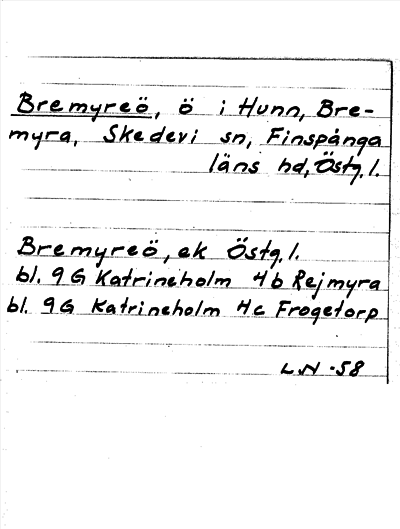 Bremyreö, ö i Hunn, Bre-
myra, Skedevi sn, Finspånga
läns hd, Östg. l.
Bremyreö, ek Östg. l.
bl. 9G Katrineholm 4b Rejmyra
bl. 9G Katrineholm 4c Frogetorp
LN -58